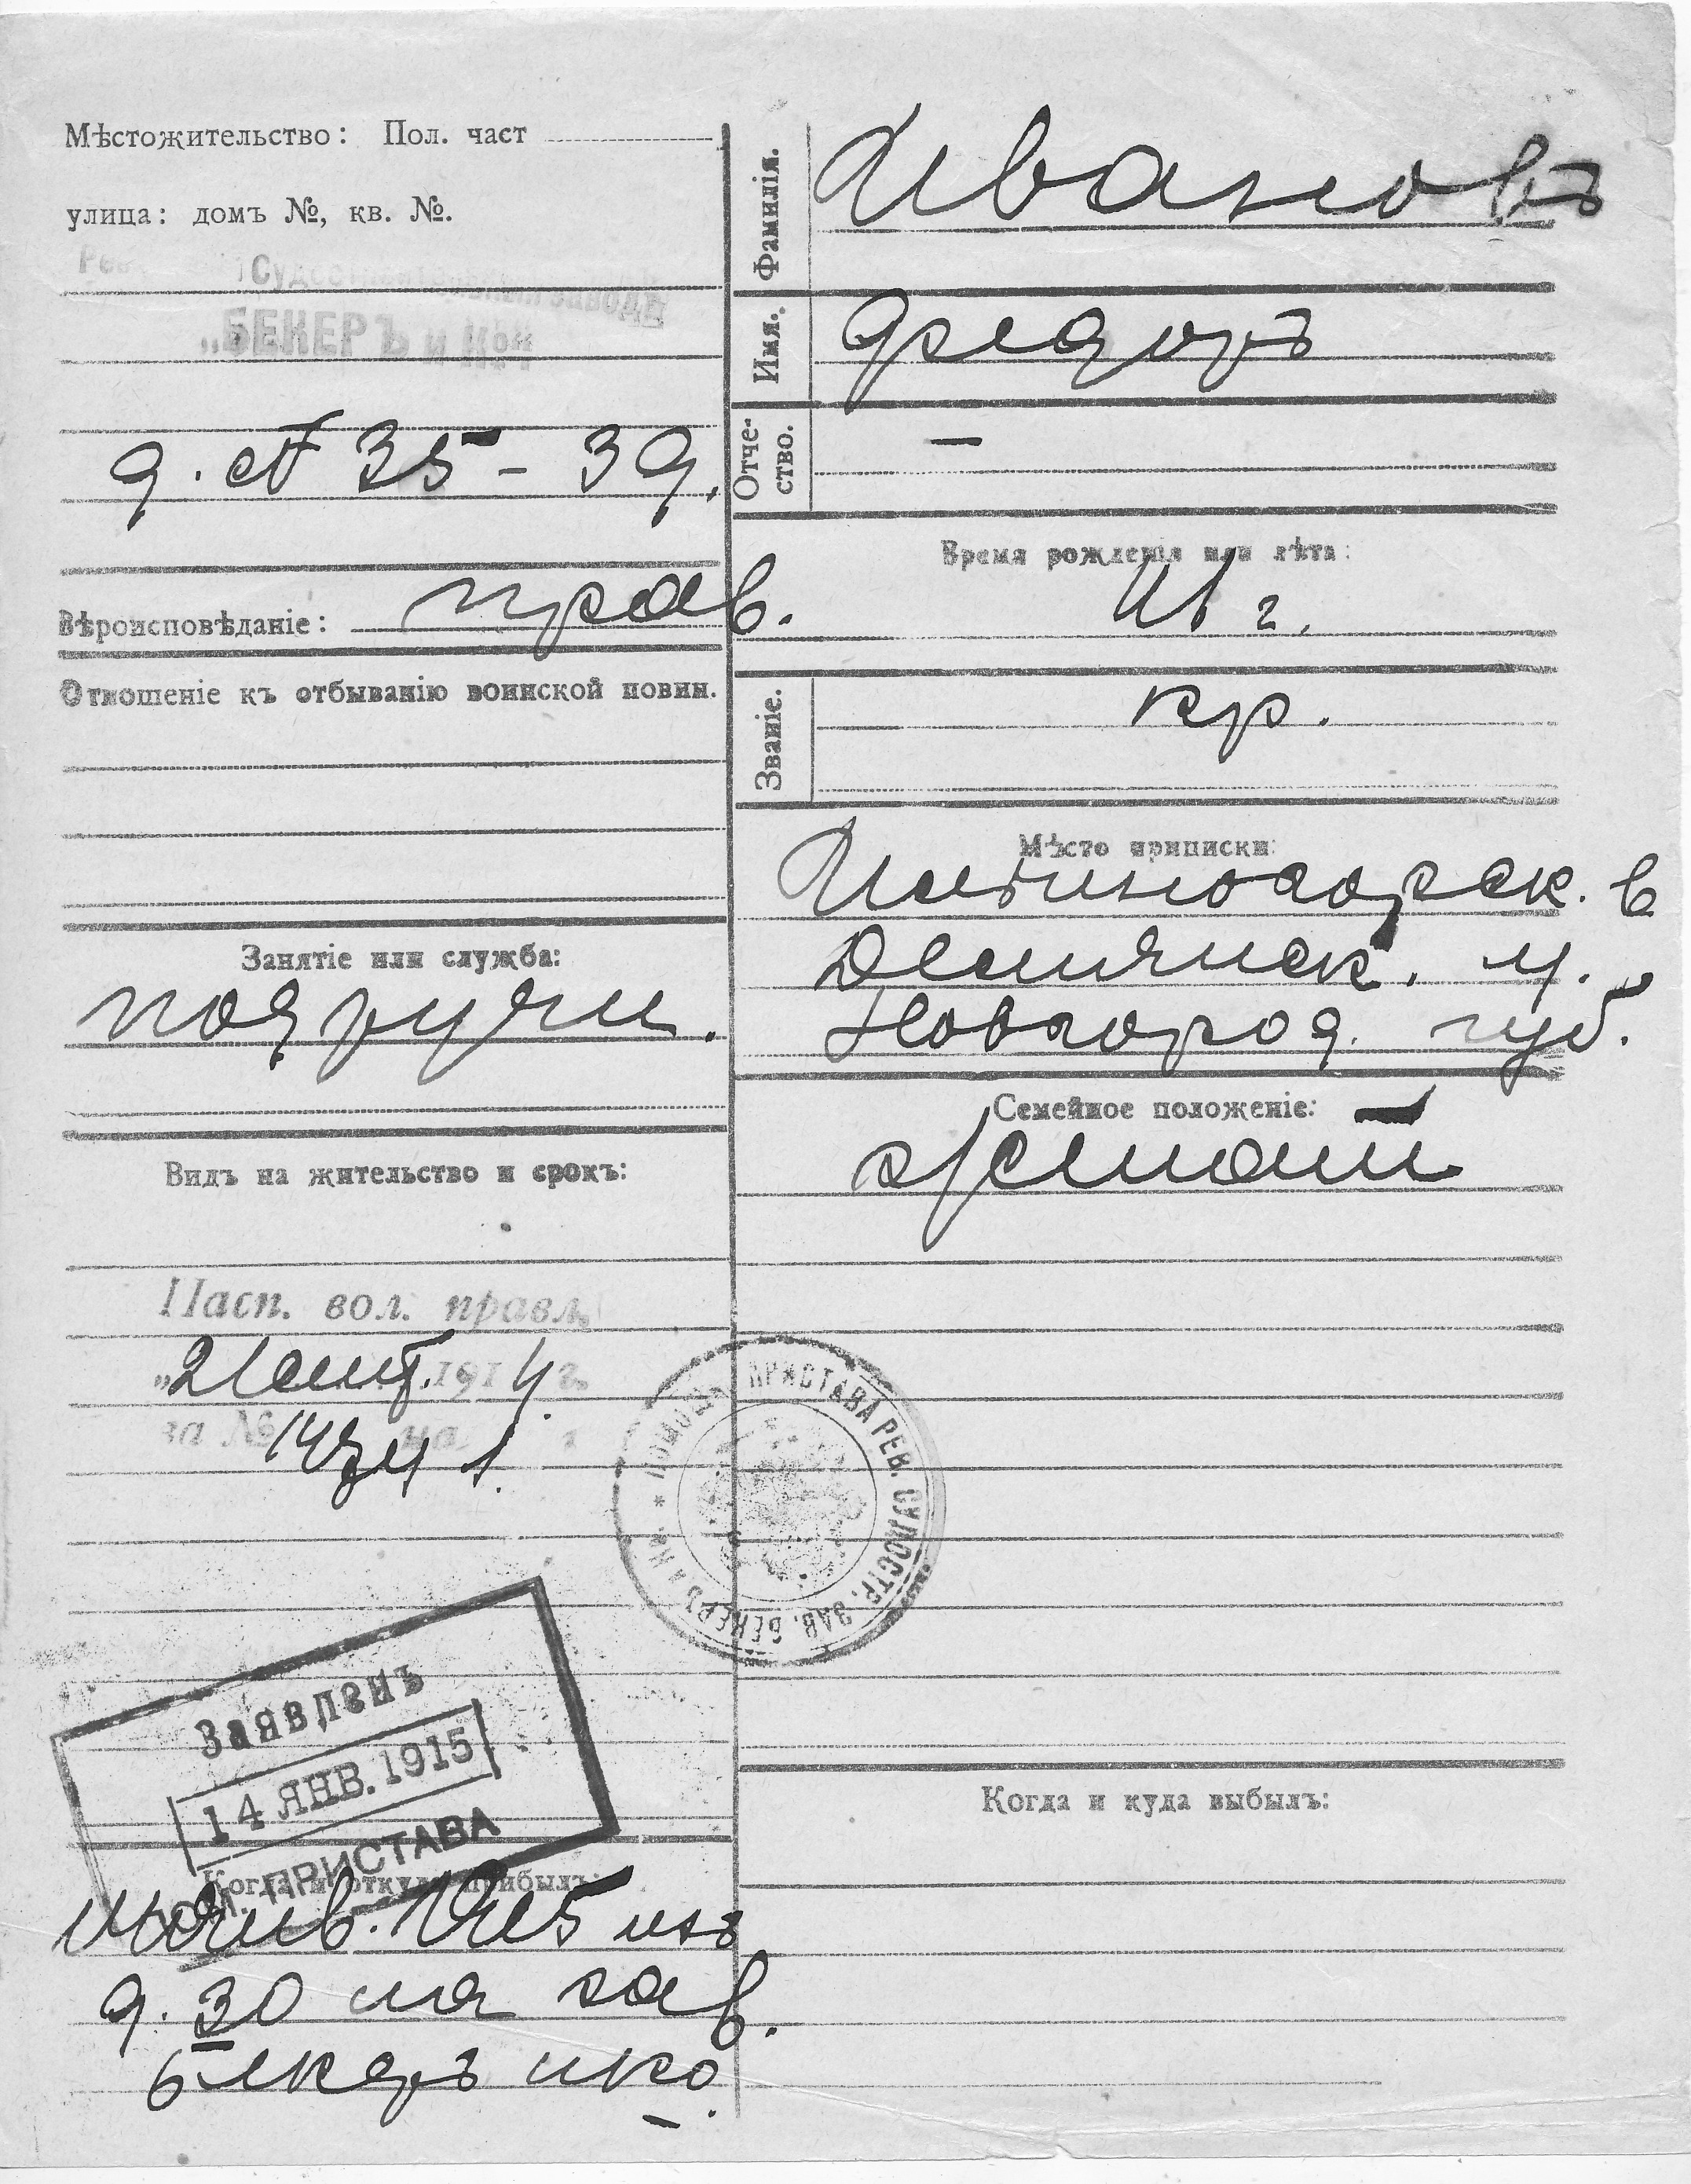 Мѣстожительство: Пол. част
улица: домъ №, кв. №.
Судостроительный заводъ
„БЕКЕРЪ и Ко"
д. № 35 - 39.
Вѣроисповѣданіе: прав.
Отношеніе къ отбыванію воинской повин.
Занятіе или служба:
подручн.
Видъ на жительство и срокъ:
Пасп. вол. правл.
„2 1914 г.
за № на г
Заявленъ
14 ЯНВ. 1915
ПОМ. ПРИСТАВА
Когда и откуда прибылъ:
14 Янв. 1915 изъ
д. 30 на зав.
Бекеръ и Ко.
Фамилія.
Ивановъ
Имя.
Федоръ
Отче-
ство.
—
Время рожденія или лѣта:
г.
Званіе.
кр.
Мѣсто приписки:
в
Демянск. у.
Новгород. губ.
Семейное положеніе:
женат
* ПОМОЩН. ПРИСТАВА РЕВ. СУДОСТР. ЗАВ. БЕКЕРЪ И Ко
Когда и куда выбылъ: